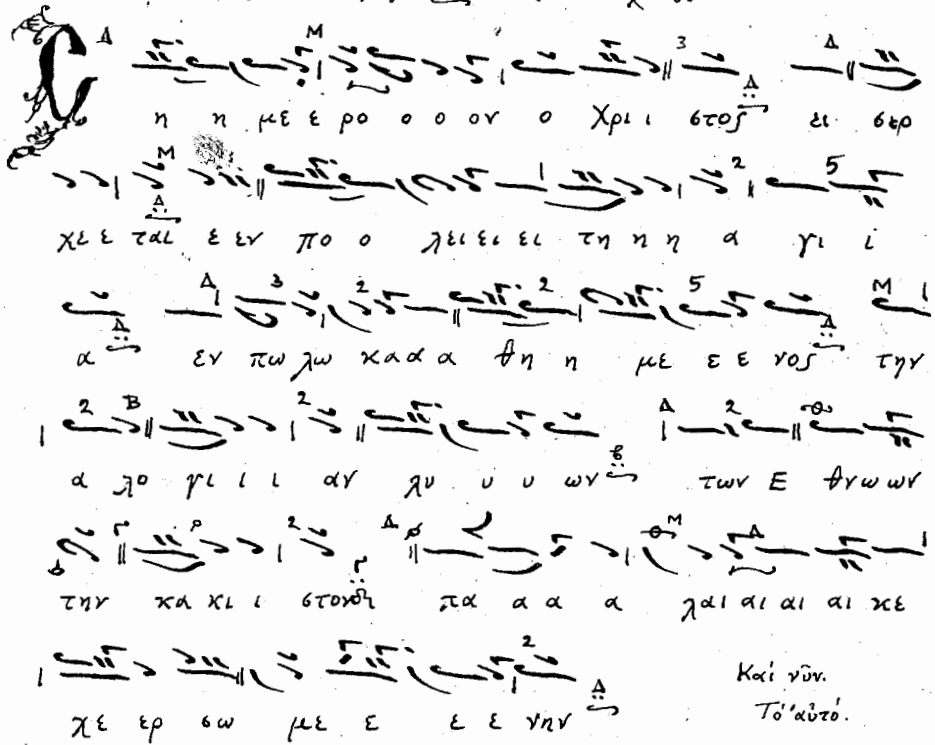 Σ η η με ε ρο ο ο ον ο Χρι ι στος ει σερ
χε ε ται ε εν πο ο λει ει ει τη η η α γι ι
α εν πω λω κα α α θη η με ε ε νος την
α λο γι ι ι αν λυ υ υ ων των Ε θνω ων
την κα κι ι στον πα α α α λαι αι αι αι κε
χε ερ σω με ε ε ε νην
Καί νῦν.
Τό αὐτό.